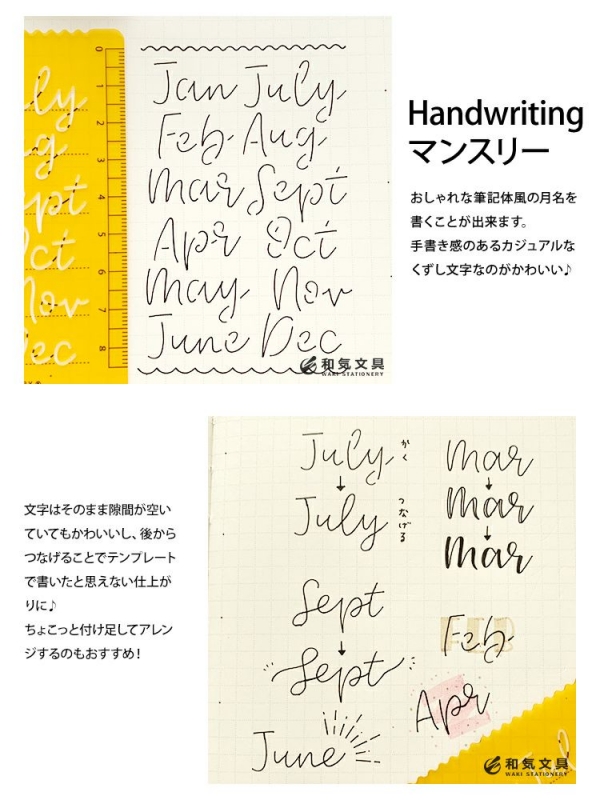 ly
g
pt
ct
Nov
ec
0
1
2
3
4
5
6
7
8
Jan July
Feb Aug
Mar Sept
Apr Oct
May Nov
June Dec
和気文具
WAKI STATIONERY
Handwriting
マンスリー
おしゃれな筆記体風の月名を
書くことが出来ます。
手書き感のあるカジュアルな
くずし文字なのがかわいい♪
文字はそのまま隙間が空い
ていてもかわいいし、後から
つなげることでテンプレート
で書いたと思えない仕上が
りに♪
ちょこっと付け足してアレン
ジするのもおすすめ！
July かく
↓
July つなげる
Sept
↓
Sept
June
Mar
↓
Mar
↓
Mar
Feb
Apr
和気文具
WAKI STATIONERY